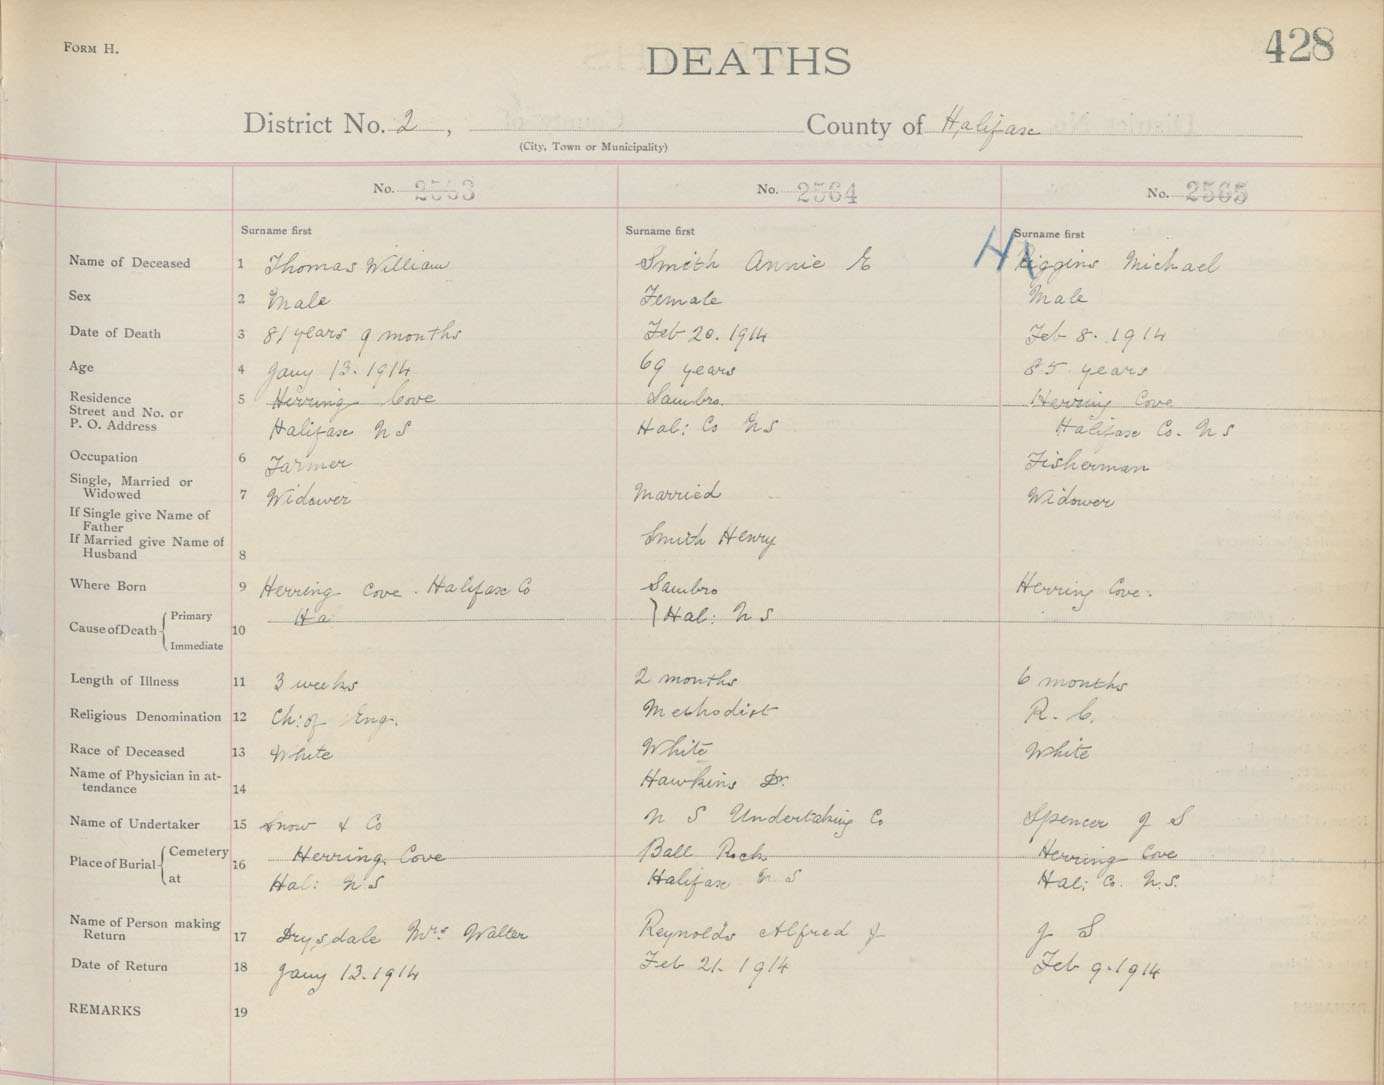 FORM H.
DEATHS
428
District No. 2, County of Halifax
(City, Town or Municipality)
No. 2563 No. 2564 No. 2565
Surname first Surname first Surname first
HR
Name of Deceased 1 Thomas William Smith Annie E Riggins Michael
Sex 2 Male Female Male
Date of Death 3 81 years 9 months Feb 20. 1914 Feb 8. 1914
Age 4 Jany 13. 1914 69 years 85 years
Residence 5 Herring Cove Sambro. Herring Cove
Street and No. or
P. O. Address Halifax N S Hal: Co N S Halifax Co. N S
Occupation 6 Farmer Fisherman
Single, Married or
Widowed 7 Widower Married Widower
If Single give Name of
Father
If Married give Name of Smith Henry
Husband 8
Where Born 9 Herring Cove. Halifax Co Sambro Herring Cove.
Cause of Death { Primary Ha } Hal: N S
10
Immediate
Length of Illness 11 3 weeks 2 months 6 months
Religious Denomination 12 Ch: of Eng. Methodist R. C.
Race of Deceased 13 White White White
Name of Physician in at-
tendance 14 Hawkins Dr.
Name of Undertaker 15 Snow & Co N S Undertaking Co Spencer J S
Place of Burial { Cemetery 16 Herring Cove Ball Rock Herring Cove
at Hal: N S Halifax N S Hal: Co. N.S.
Name of Person making
Return 17 Drysdale Mrs. Walter Reynolds Alfred J J S
Date of Return 18 Jany 13. 1914 Feb 21. 1914 Feb 9. 1914
REMARKS 19